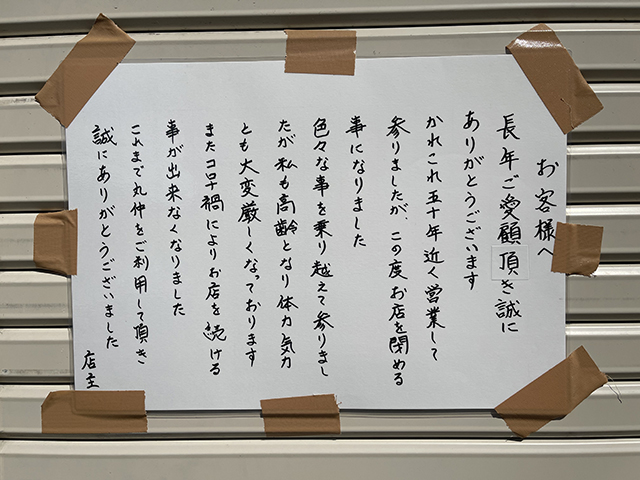 お客様へ
長年ご愛顧頂き誠に
ありがとうございます
かれこれ五十年近く営業して
参りましたが、この度お店を閉める
事になりました
色々な事を乗り越えて参りまし
たが私も高齢となり体力気力
とも大変厳しくなっております
またコロナ禍によりお店を続ける
事が出来なくなりました
これまで丸仲をご利用して頂き
誠にありがとうございました
店主